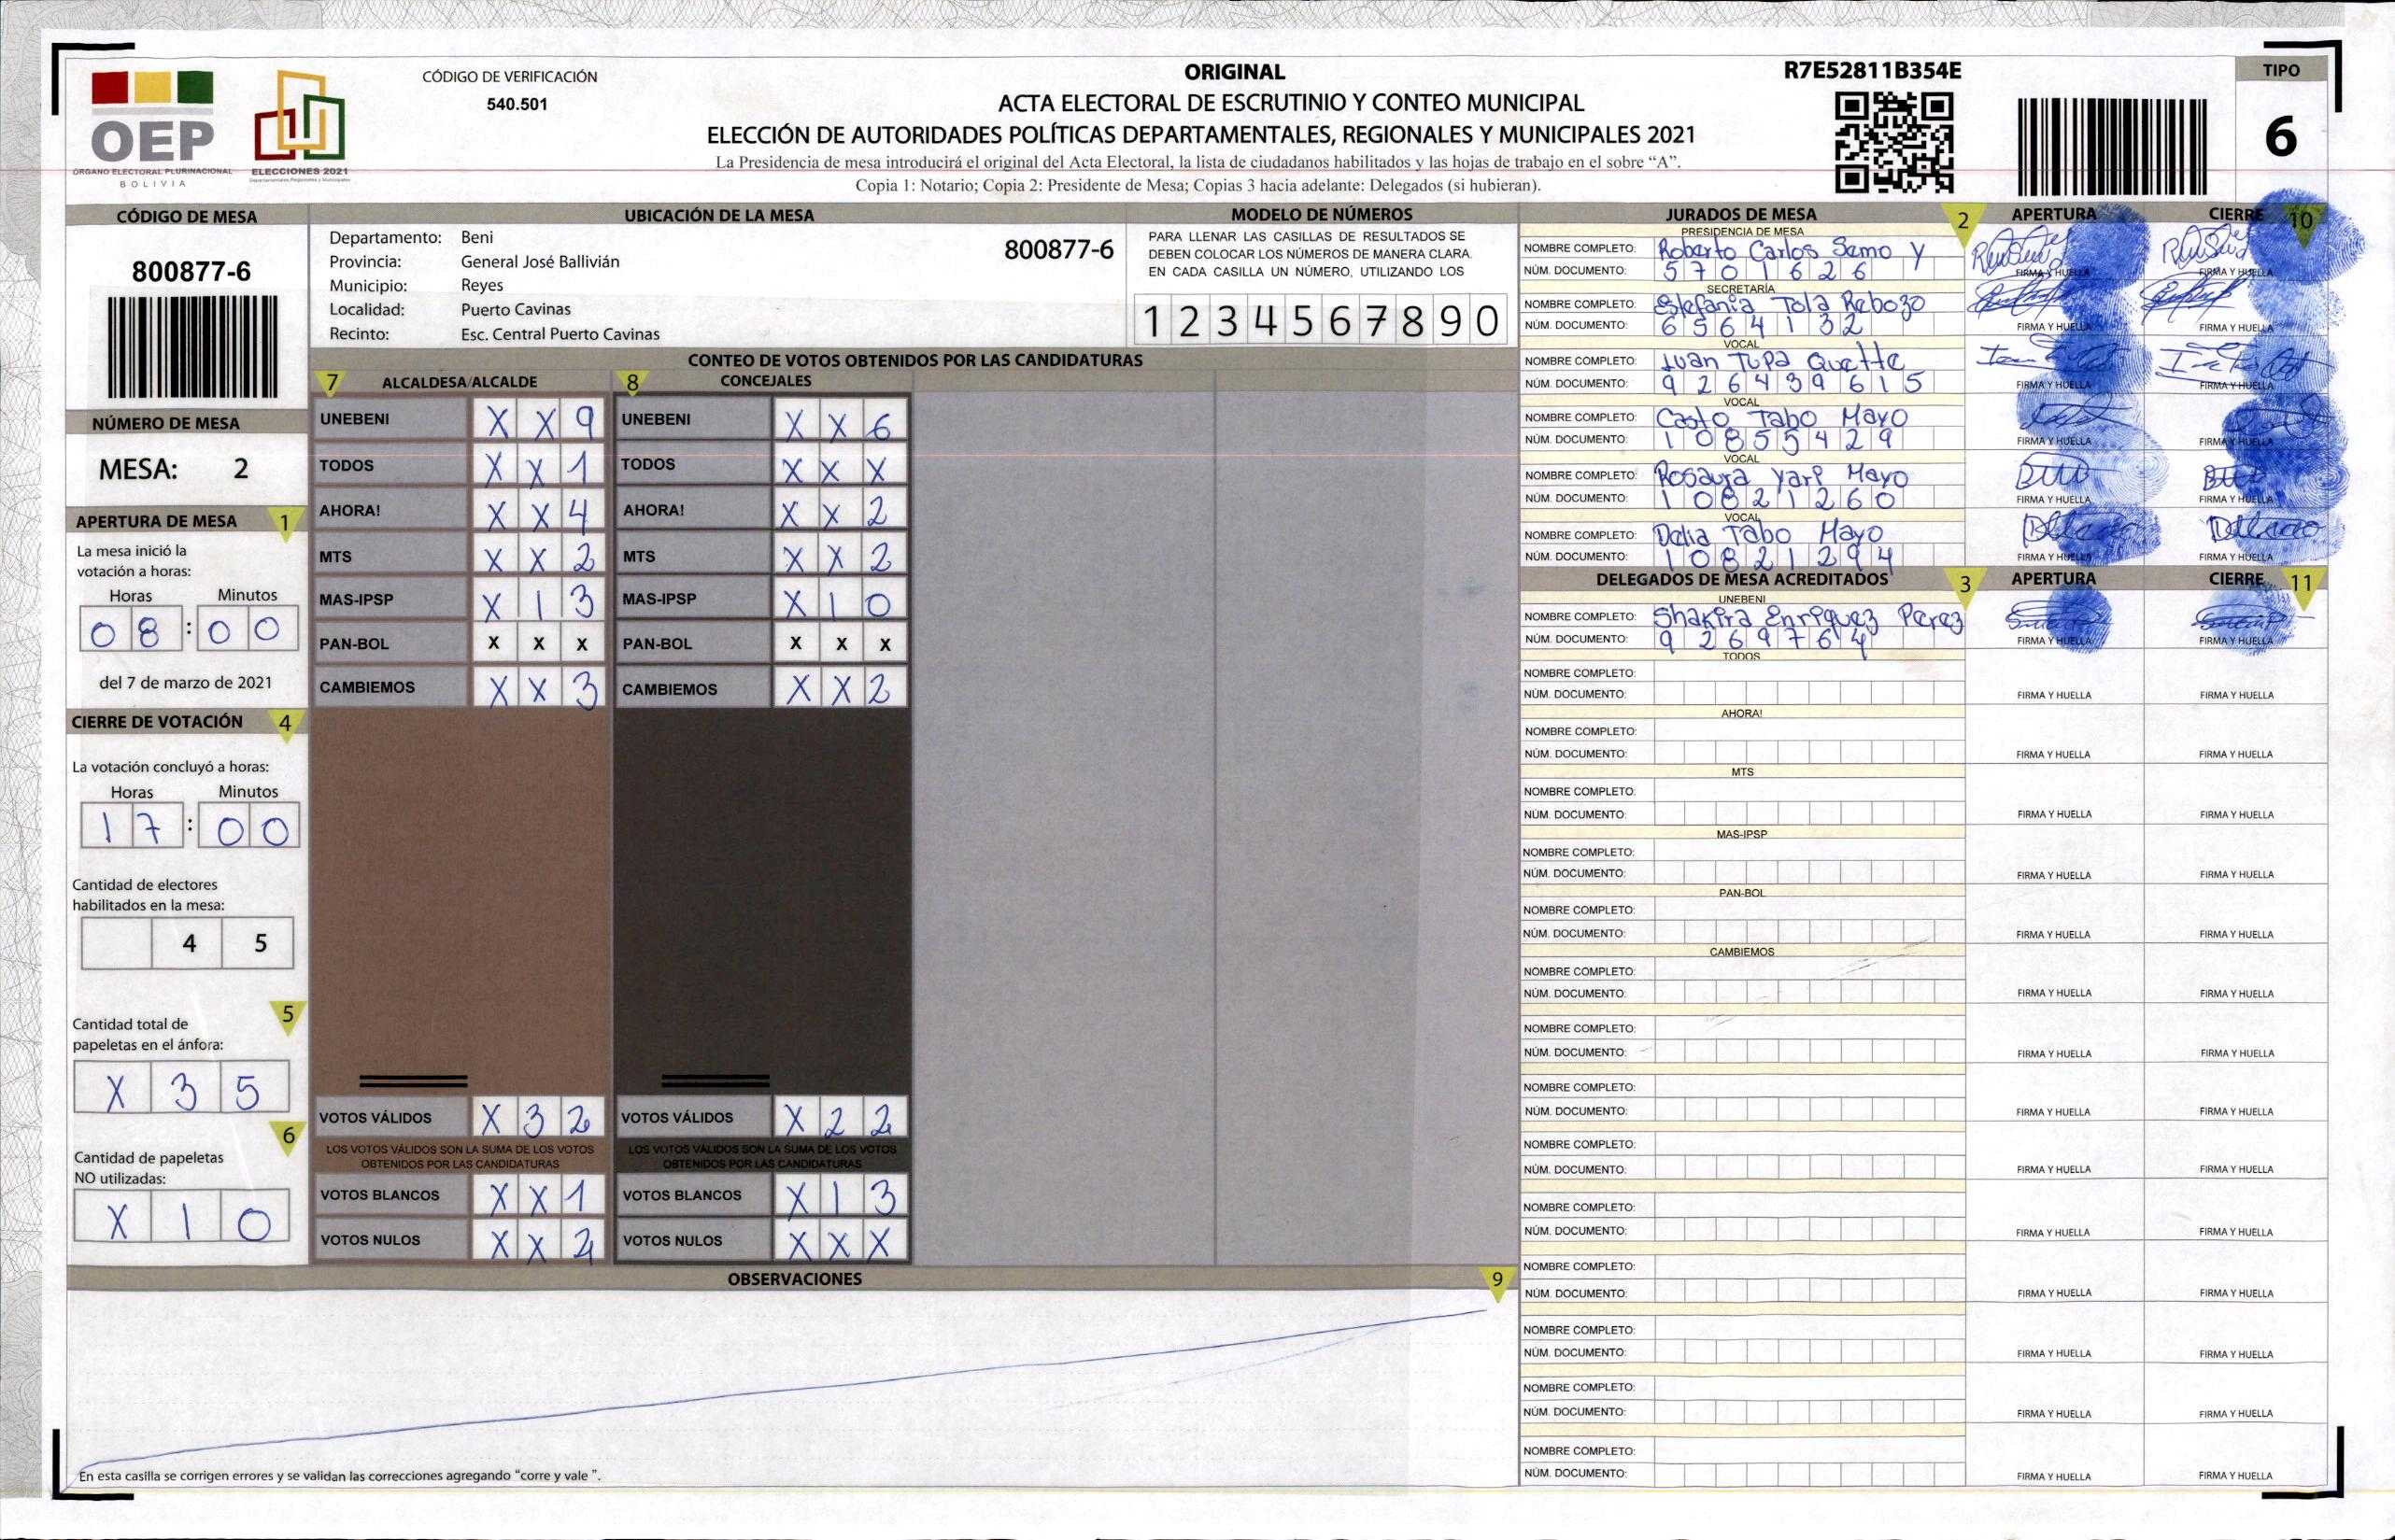 OEP
ÓRGANO ELECTORAL PLURINACIONAL
BOLIVIA
ELECCIONES 2021
Departamentales, Regionales y Municipales
CÓDIGO DE VERIFICACIÓN
540.501
ORIGINAL
ACTA ELECTORAL DE ESCRUTINIO Y CONTEO MUNICIPAL
ELECCIÓN DE AUTORIDADES POLÍTICAS DEPARTAMENTALES, REGIONALES Y MUNICIPALES 2021
La Presidencia de mesa introducirá el original del Acta Electoral, la lista de ciudadanos habilitados y las hojas de trabajo en el sobre “A”.
Copia 1: Notario; Copia 2: Presidente de Mesa; Copias 3 hacia adelante: Delegados (si hubieran).
R7E52811B354E
TIPO
6
CÓDIGO DE MESA
800877-6
NÚMERO DE MESA
MESA: 2
APERTURA DE MESA 1
La mesa inició la
votación a horas:
Horas Minutos
08:00
del 7 de marzo de 2021
CIERRE DE VOTACIÓN 4
La votación concluyó a horas:
Horas Minutos
17:00
Cantidad de electores
habilitados en la mesa:
4 5
5
Cantidad total de
papeletas en el ánfora:
X 3 5
6
Cantidad de papeletas
NO utilizadas:
X 1 0
UBICACIÓN DE LA MESA
Departamento: Beni
Provincia: General José Ballivián
Municipio: Reyes
Localidad: Puerto Cavinas
Recinto: Esc. Central Puerto Cavinas
800877-6
MODELO DE NÚMEROS
PARA LLENAR LAS CASILLAS DE RESULTADOS SE
DEBEN COLOCAR LOS NÚMEROS DE MANERA CLARA.
EN CADA CASILLA UN NÚMERO, UTILIZANDO LOS
1 2 3 4 5 6 7 8 9 0
CONTEO DE VOTOS OBTENIDOS POR LAS CANDIDATURAS
7 ALCALDESA/ALCALDE
UNEBENI X X 9
TODOS X X 1
AHORA! X X 4
MTS X X 2
MAS-IPSP X 1 3
PAN-BOL X X X
CAMBIEMOS X X 3
VOTOS VÁLIDOS X 3 2
LOS VOTOS VÁLIDOS SON LA SUMA DE LOS VOTOS
OBTENIDOS POR LAS CANDIDATURAS
VOTOS BLANCOS X X 1
VOTOS NULOS X X 2
8 CONCEJALES
UNEBENI X X 6
TODOS X X X
AHORA! X X 2
MTS X X 2
MAS-IPSP X 1 0
PAN-BOL X X X
CAMBIEMOS X X 2
VOTOS VÁLIDOS X 2 2
LOS VOTOS VÁLIDOS SON LA SUMA DE LOS VOTOS
OBTENIDOS POR LAS CANDIDATURAS
VOTOS BLANCOS X 1 3
VOTOS NULOS X X X
OBSERVACIONES 9
En esta casilla se corrigen errores y se validan las correcciones agregando “corre y vale ”.
JURADOS DE MESA 2 APERTURA CIERRE 10
PRESIDENCIA DE MESA
NOMBRE COMPLETO: Roberto Carlos Semo Y
NÚM. DOCUMENTO: 5701626 FIRMA Y HUELLA FIRMA Y HUELLA
SECRETARÍA
NOMBRE COMPLETO: Estefania Tola Rebozo
NÚM. DOCUMENTO: 6564132 FIRMA Y HUELLA FIRMA Y HUELLA
VOCAL
NOMBRE COMPLETO: Juan Tupa Quette
NÚM. DOCUMENTO: 926439615 FIRMA Y HUELLA FIRMA Y HUELLA
VOCAL
NOMBRE COMPLETO: Casto Tabo Mayo
NÚM. DOCUMENTO: 10855429 FIRMA Y HUELLA FIRMA Y HUELLA
VOCAL
NOMBRE COMPLETO: Rosaura Yari Mayo
NÚM. DOCUMENTO: 10821260 FIRMA Y HUELLA FIRMA Y HUELLA
VOCAL
NOMBRE COMPLETO: Delia Tabo Mayo
NÚM. DOCUMENTO: 10821294 FIRMA Y HUELLA FIRMA Y HUELLA
DELEGADOS DE MESA ACREDITADOS 3 APERTURA CIERRE 11
UNEBENI
NOMBRE COMPLETO: Shakira Enriquez Perez
NÚM. DOCUMENTO: 9269764 FIRMA Y HUELLA FIRMA Y HUELLA
TODOS
NOMBRE COMPLETO:
NÚM. DOCUMENTO: FIRMA Y HUELLA FIRMA Y HUELLA
AHORA!
NOMBRE COMPLETO:
NÚM. DOCUMENTO: FIRMA Y HUELLA FIRMA Y HUELLA
MTS
NOMBRE COMPLETO:
NÚM. DOCUMENTO: FIRMA Y HUELLA FIRMA Y HUELLA
MAS-IPSP
NOMBRE COMPLETO:
NÚM. DOCUMENTO: FIRMA Y HUELLA FIRMA Y HUELLA
PAN-BOL
NOMBRE COMPLETO:
NÚM. DOCUMENTO: FIRMA Y HUELLA FIRMA Y HUELLA
CAMBIEMOS
NOMBRE COMPLETO:
NÚM. DOCUMENTO: FIRMA Y HUELLA FIRMA Y HUELLA
NOMBRE COMPLETO:
NÚM. DOCUMENTO: FIRMA Y HUELLA FIRMA Y HUELLA
NOMBRE COMPLETO:
NÚM. DOCUMENTO: FIRMA Y HUELLA FIRMA Y HUELLA
NOMBRE COMPLETO:
NÚM. DOCUMENTO: FIRMA Y HUELLA FIRMA Y HUELLA
NOMBRE COMPLETO:
NÚM. DOCUMENTO: FIRMA Y HUELLA FIRMA Y HUELLA
NOMBRE COMPLETO:
NÚM. DOCUMENTO: FIRMA Y HUELLA FIRMA Y HUELLA
NOMBRE COMPLETO:
NÚM. DOCUMENTO: FIRMA Y HUELLA FIRMA Y HUELLA
NOMBRE COMPLETO:
NÚM. DOCUMENTO: FIRMA Y HUELLA FIRMA Y HUELLA
NOMBRE COMPLETO:
NÚM. DOCUMENTO: FIRMA Y HUELLA FIRMA Y HUELLA